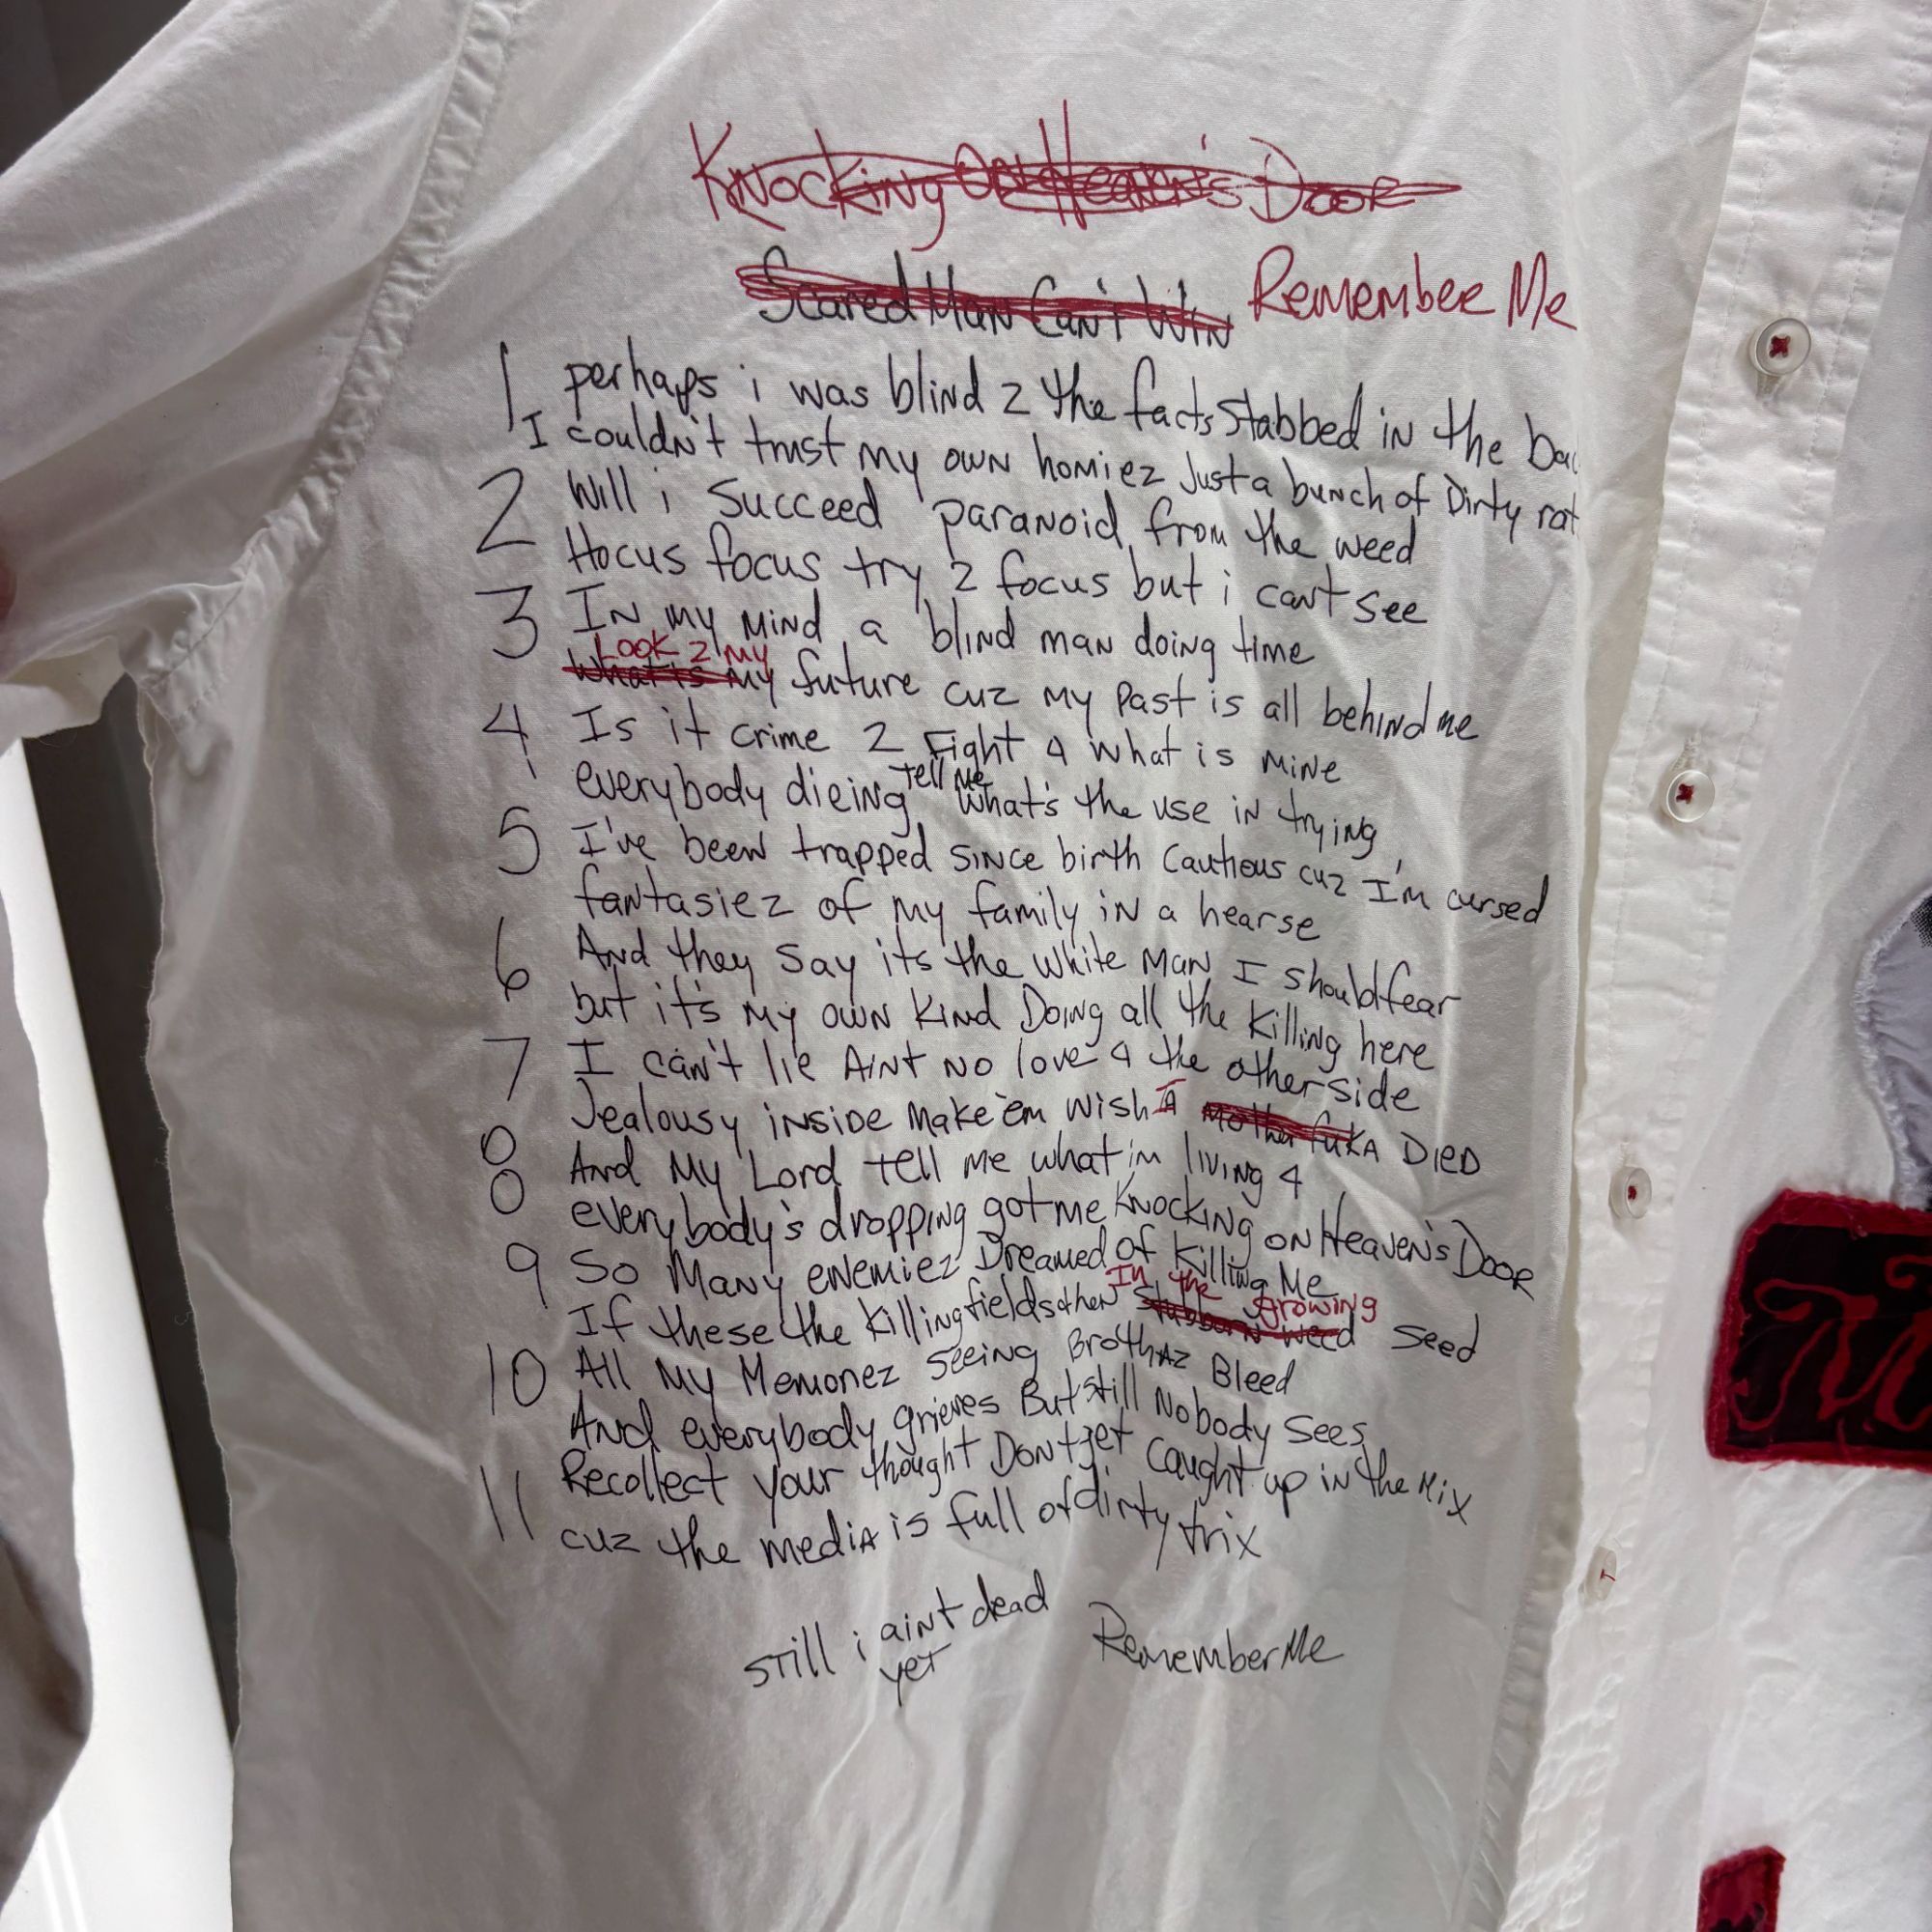 Knocking On Heaven's Door
Scared Man Can't Win Remember Me
1 perhaps i was blind 2 the facts Stabbed in the
I couldn't trust my own homiez Just a bunch of Dirty rat
2 Will i Succeed paranoid from the weed
Hocus focus try 2 focus but i can't see
3 In my mind a blind man doing time
Look 2 my
What is my future cuz my past is all behind me
4 Is it crime 2 Fight 4 what is mine
everybody dieing tell me what's the use in trying
5 I've been trapped since birth Cautious cuz I'm cursed
fantasiez of my family in a hearse
6 And they say its the white man I should fear
but it's my own kind Doing all the killing here
7 I can't lie Aint no love 4 the other side
Jealousy inside Make em wish I Motha fuKA DIED
8 And My Lord tell me what im living 4
everybody's dropping got me Knocking on Heaven's Door
9 So Many enemiez Dreamed of Killing Me
In the growing
If these the killing fields then Stubborn weed seed
10 All My Memoriez seeing BrothAz Bleed
And everybody grieves But still Nobody sees
11 Recollect your thought Dont get caught up in the Mix
cuz the mediA is full of dirty trix
still i aint dead
yet
Remember Me